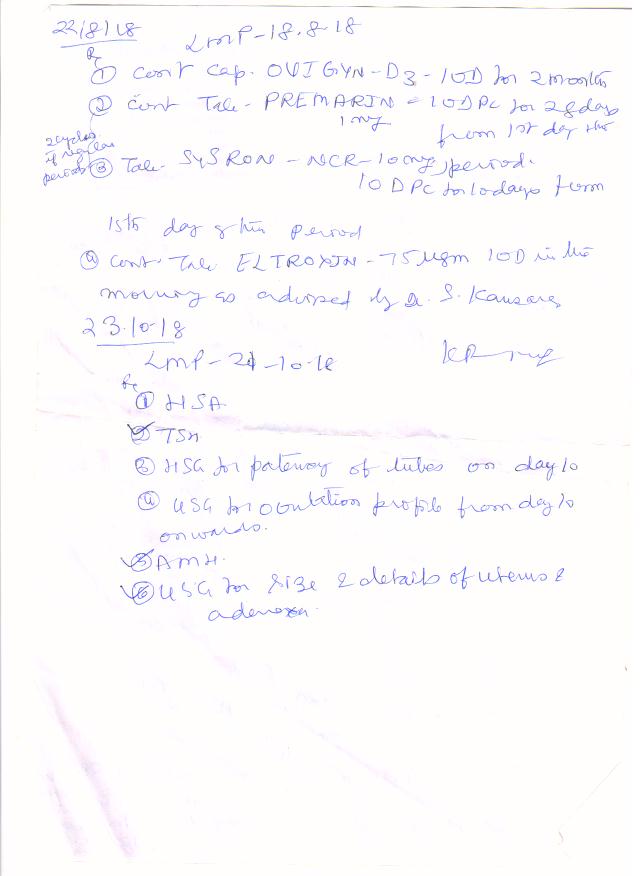 22/8/18
LMP-18.8.18
Rx
① Cont Cap. OVIGYN-D3 - 10D for 2 months
② Cont Tab. PREMARIN - 10D PC for 28 days
1 mg
from 1st day of the
2 cycles
if regular
periods
③ Tab. SYSRON-NCR-10mg period.
10D PC for 10 days from
15th day of the period
④ Cont. Tab. ELTROXIN-75 µgm 10D in the
morning as advised by Dr. S.
23.10.18
LMP-21-10-18
Rx
① HSA
② TSH
③ HSG for patency of tubes on day 10
④ USG for ovulation profile from day 10
onwards.
⑤ AMH.
⑥ USG for size & details of uterus &
adenexa.